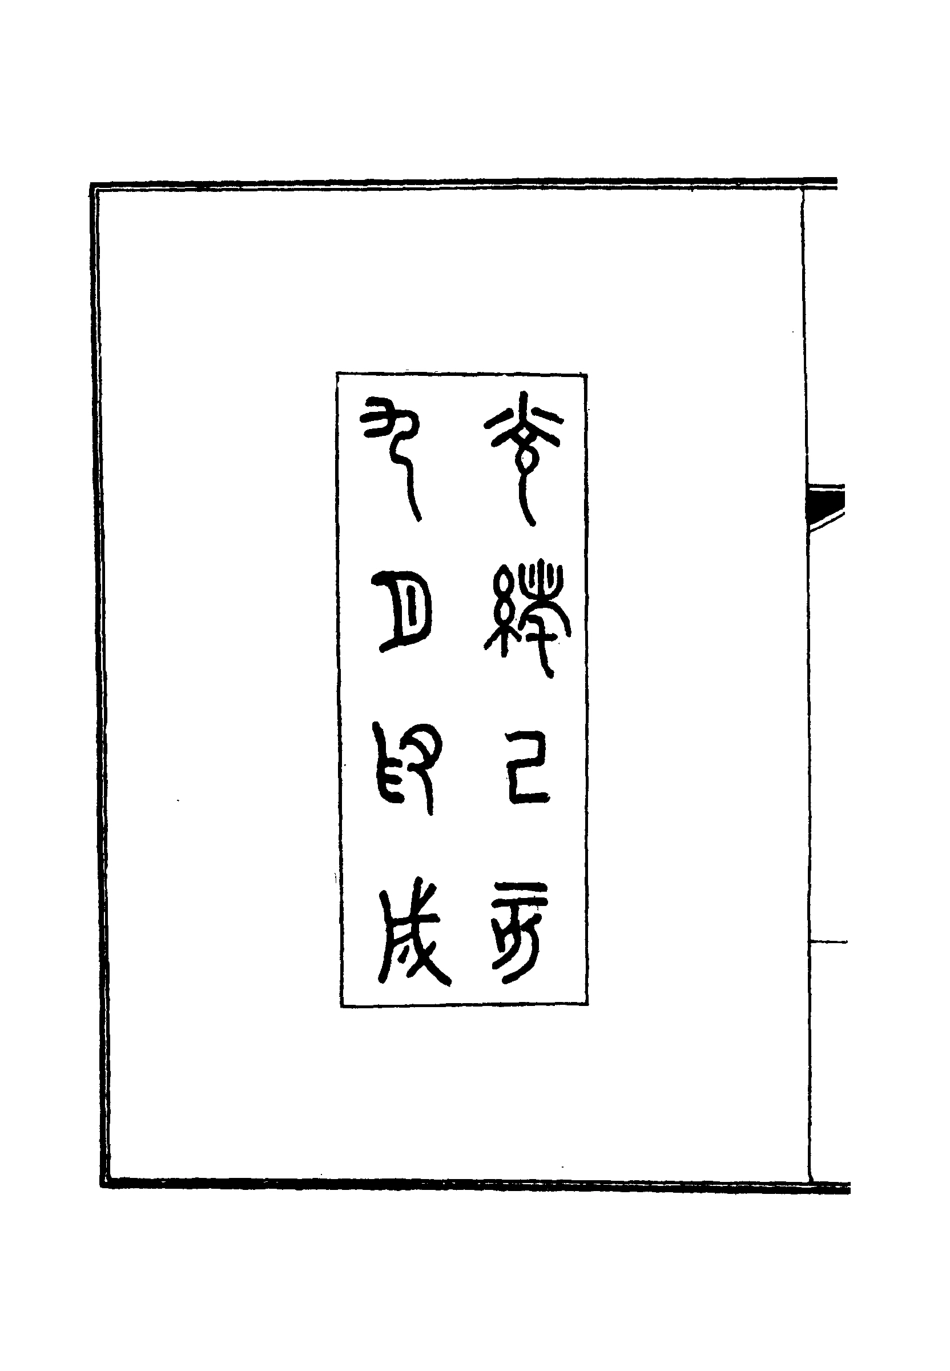 光緒己亥
九月印成